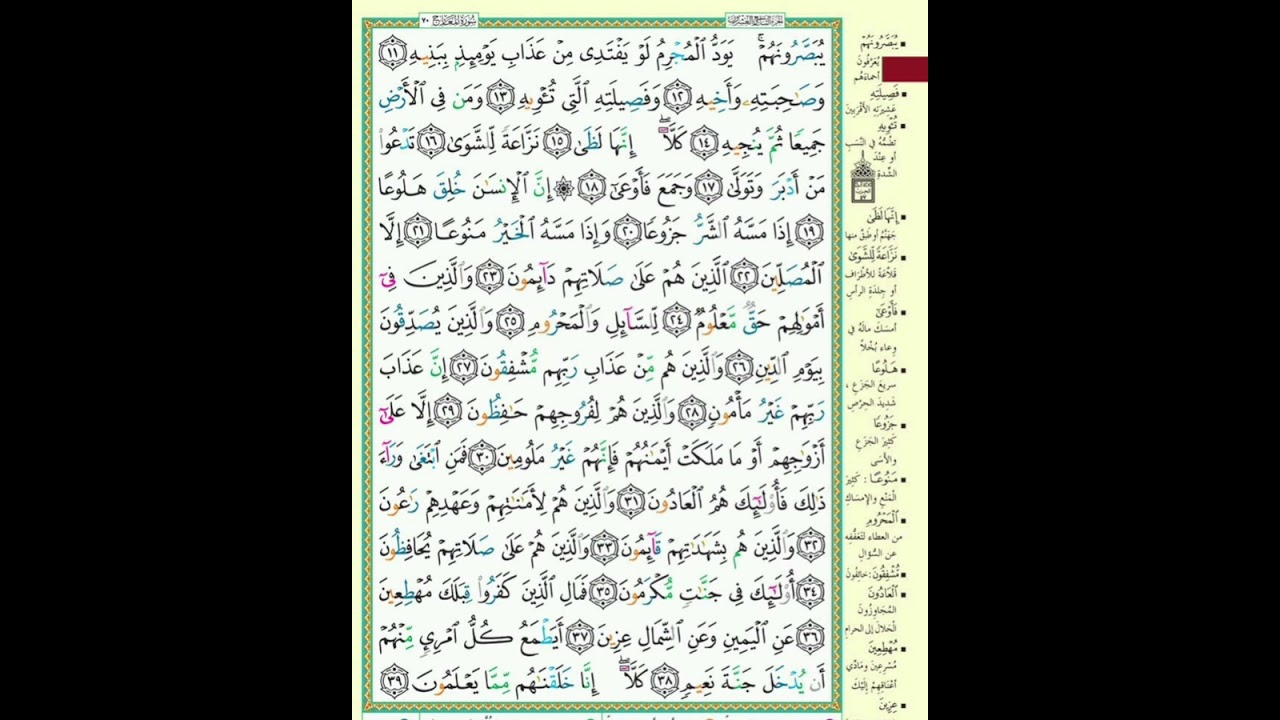 سُورَةُ المَعَارِجِ ٧٠
الجزء التاسع والعشرون
يُبَصَّرُونَهُمْ ۚ يَوَدُّ ٱلْمُجْرِمُ لَوْ يَفْتَدِى مِنْ عَذَابِ يَوْمِئِذٍۭ بِبَنِيهِ ١١
وَصَٰحِبَتِهِۦ وَأَخِيهِ ١٢ وَفَصِيلَتِهِ ٱلَّتِى تُـْٔوِيهِ ١٣ وَمَن فِى ٱلْأَرْضِ
جَمِيعًا ثُمَّ يُنجِيهِ ١٤ كَلَّآ ۖ إِنَّهَا لَظَىٰ ١٥ نَزَّاعَةً لِّلشَّوَىٰ ١٦ تَدْعُوا۟
مَنْ أَدْبَرَ وَتَوَلَّىٰ ١٧ وَجَمَعَ فَأَوْعَىٰٓ ١٨ ۞ إِنَّ ٱلْإِنسَٰنَ خُلِقَ هَلُوعًا
١٩ إِذَا مَسَّهُ ٱلشَّرُّ جَزُوعًا ٢٠ وَإِذَا مَسَّهُ ٱلْخَيْرُ مَنُوعًا ٢١ إِلَّا
ٱلْمُصَلِّينَ ٢٢ ٱلَّذِينَ هُمْ عَلَىٰ صَلَاتِهِمْ دَآئِمُونَ ٢٣ وَٱلَّذِينَ فِىٓ
أَمْوَٰلِهِمْ حَقٌّ مَّعْلُومٌ ٢٤ لِّلسَّآئِلِ وَٱلْمَحْرُومِ ٢٥ وَٱلَّذِينَ يُصَدِّقُونَ
بِيَوْمِ ٱلدِّينِ ٢٦ وَٱلَّذِينَ هُم مِّنْ عَذَابِ رَبِّهِم مُّشْفِقُونَ ٢٧ إِنَّ عَذَابَ
رَبِّهِمْ غَيْرُ مَأْمُونٍ ٢٨ وَٱلَّذِينَ هُمْ لِفُرُوجِهِمْ حَٰفِظُونَ ٢٩ إِلَّا عَلَىٰٓ
أَزْوَٰجِهِمْ أَوْ مَا مَلَكَتْ أَيْمَٰنُهُمْ فَإِنَّهُمْ غَيْرُ مَلُومِينَ ٣٠ فَمَنِ ٱبْتَغَىٰ وَرَآءَ
ذَٰلِكَ فَأُو۟لَٰٓئِكَ هُمُ ٱلْعَادُونَ ٣١ وَٱلَّذِينَ هُمْ لِأَمَٰنَٰتِهِمْ وَعَهْدِهِمْ رَٰعُونَ
٣٢ وَٱلَّذِينَ هُم بِشَهَٰدَٰتِهِمْ قَآئِمُونَ ٣٣ وَٱلَّذِينَ هُمْ عَلَىٰ صَلَاتِهِمْ يُحَافِظُونَ
٣٤ أُو۟لَٰٓئِكَ فِى جَنَّٰتٍ مُّكْرَمُونَ ٣٥ فَمَالِ ٱلَّذِينَ كَفَرُوا۟ قِبَلَكَ مُهْطِعِينَ
٣٦ عَنِ ٱلْيَمِينِ وَعَنِ ٱلشِّمَالِ عِزِينَ ٣٧ أَيَطْمَعُ كُلُّ ٱمْرِئٍ مِّنْهُمْ
أَن يُدْخَلَ جَنَّةَ نَعِيمٍ ٣٨ كَلَّآ ۖ إِنَّا خَلَقْنَٰهُم مِّمَّا يَعْلَمُونَ ٣٩
▪ يُبَصَّرُونَهُمْ
يُعَرَّفُونَ
أحماءَهُم
▪ فَصِيلَتِهِ
عَشِيرَتِهِ الأقْرَبِينَ
▪ تُـْٔوِيهِ
تَضُمُّهُ فِي النَّسَبِ
أو عِنْدَ
الشِّدةِ
▪ إِنَّهَا لَظَىٰ
جَهَنَّمُ أو طَبَقٌ منها
▪ نَزَّاعَةً لِّلشَّوَىٰ
قَلاَّعَةً للأطْرَافِ
أو جِلْدَةِ الرأسِ
▪ فَأَوْعَىٰٓ
أمسَكَ مالَهُ في
وِعاءٍ بُخْلاً
▪ هَلُوعًا
سريعَ الجَزَعِ ،
شَدِيدَ الحِرْصِ
▪ جَزُوعًا
كَثِيرَ الجَزَعِ
والأسَى
▪ مَنُوعًا : كَثِيرَ
المَنْعِ والإمْسَاكِ
▪ ٱلْمَحْرُومِ
من العطاء لِتَعَفُّفِهِ
عن السُّؤالِ
▪ مُّشْفِقُونَ : خائفُونَ
▪ ٱلْعَادُونَ
المُجَاوِزُونَ
الْحَلالَ إلى الحرامِ
▪ مُهْطِعِينَ
مُسْرِعِينَ ومَادِّي
أعْنَاقِهِمْ إِلَيْكَ
▪ عِزِينَ